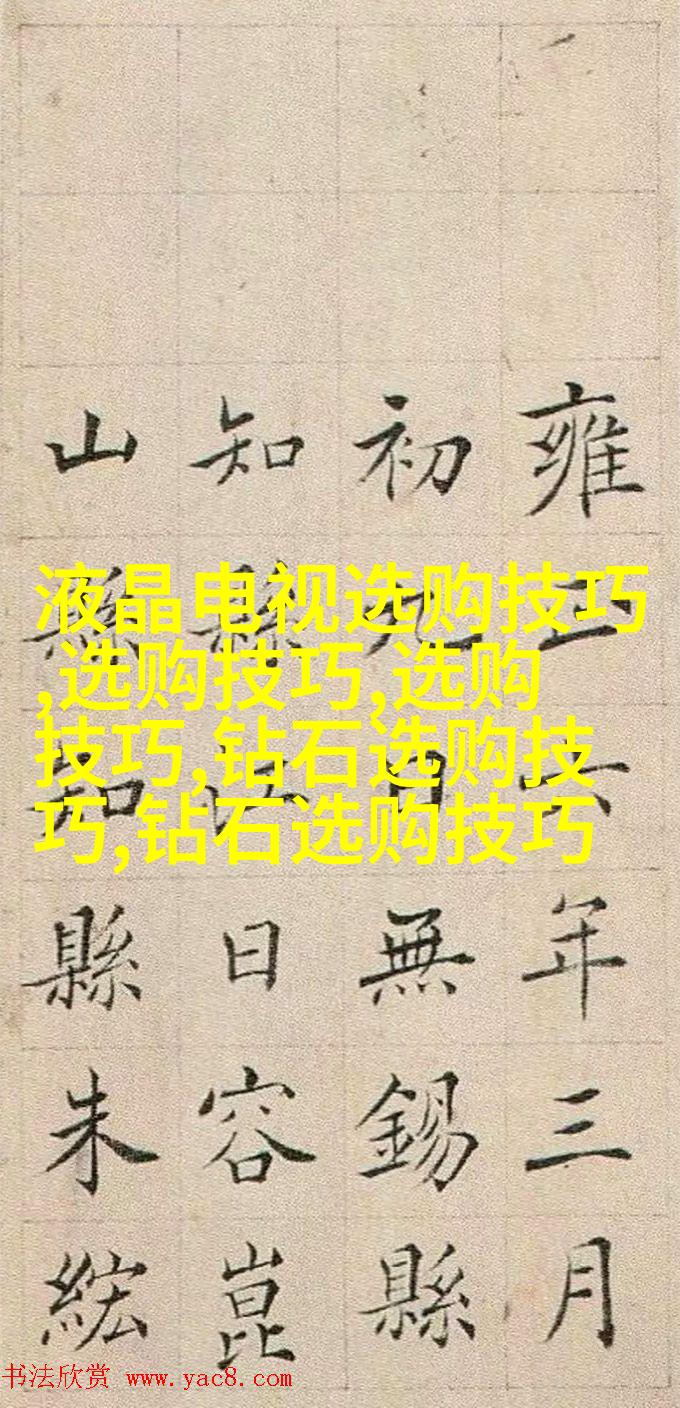 雍正六年三月
初九日無錫縣
知縣江日容崑
山縣知縣朱綋
液晶电视选购技巧
,选购技巧,选购
技巧,钻石选购技
巧,钻石选购技巧
书法欣赏 www.yac8.com